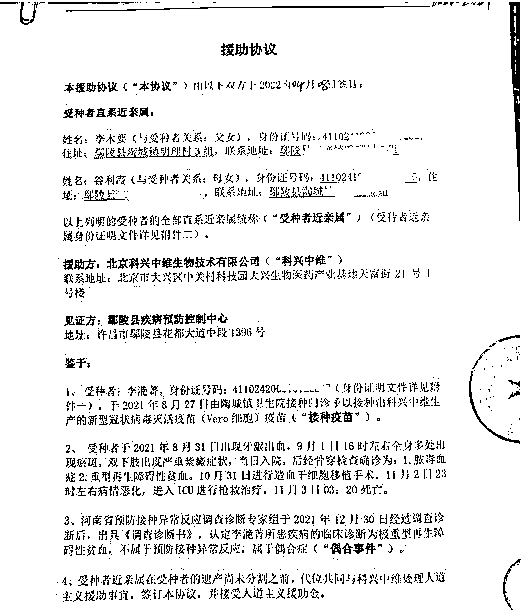 援助协议
本援助协议（“本协议”）由以下双方于2022年04月08日签署：
受种者直系近亲属：
姓名：李木要（与受种者关系：父女），身份证号码：411024
住址：鄢陵县陶城镇明理村3组，联系地址：鄢陵
姓名：谷利霞（与受种者关系：母女），身份证号码：411024，住
址：鄢陵县，联系地址：鄢陵县陶城
以上列明的受种者的全部直系近亲属统称（“受种者近亲属”）（受种者近亲
属身份证明文件详见附件二）。
援助方：北京科兴中维生物技术有限公司（“科兴中维”）
联系地址：北京市大兴区中关村科技园大兴生物医药产业基地天富街21号1
号楼
见证方：鄢陵县疾病预防控制中心
地址：许昌市鄢陵县花都大道中段1396号
鉴于：
1、受种者：李滟菁，身份证号码：411024200（身份证明文件详见附
件一），于2021年8月27日由陶城镇卫生院接种门诊予以接种由科兴中维生产
的新型冠状病毒灭活疫苗（Vero细胞）疫苗（“接种疫苗”）。
2、受种者于2021年8月31日出现牙龈出血，9月1日16时左右全身多处出
现瘀斑，双下肢出现严重紫癜症状，当日入院，后经骨穿检查确诊为：1.脓毒血
症2.重型再生障碍性贫血。10月31日进行造血干细胞移植手术，11月2日23
时左右病情恶化，进入ICU进行抢救治疗，11月3日03：20死亡。
3、河南省预防接种异常反应调查诊断专家组于2021年12月30日经过调查诊
断后，出具《调查诊断书》，认定李滟菁所患疾病的临床诊断为极重型再生障
碍性贫血，不属于预防接种异常反应，属于偶合症（“偶合事件”）。
4、受种者近亲属在受种者的遗产尚未分割之前，代位共同与科兴中维处理人道
主义援助事宜，签订本协议，并接受人道主义援助金。